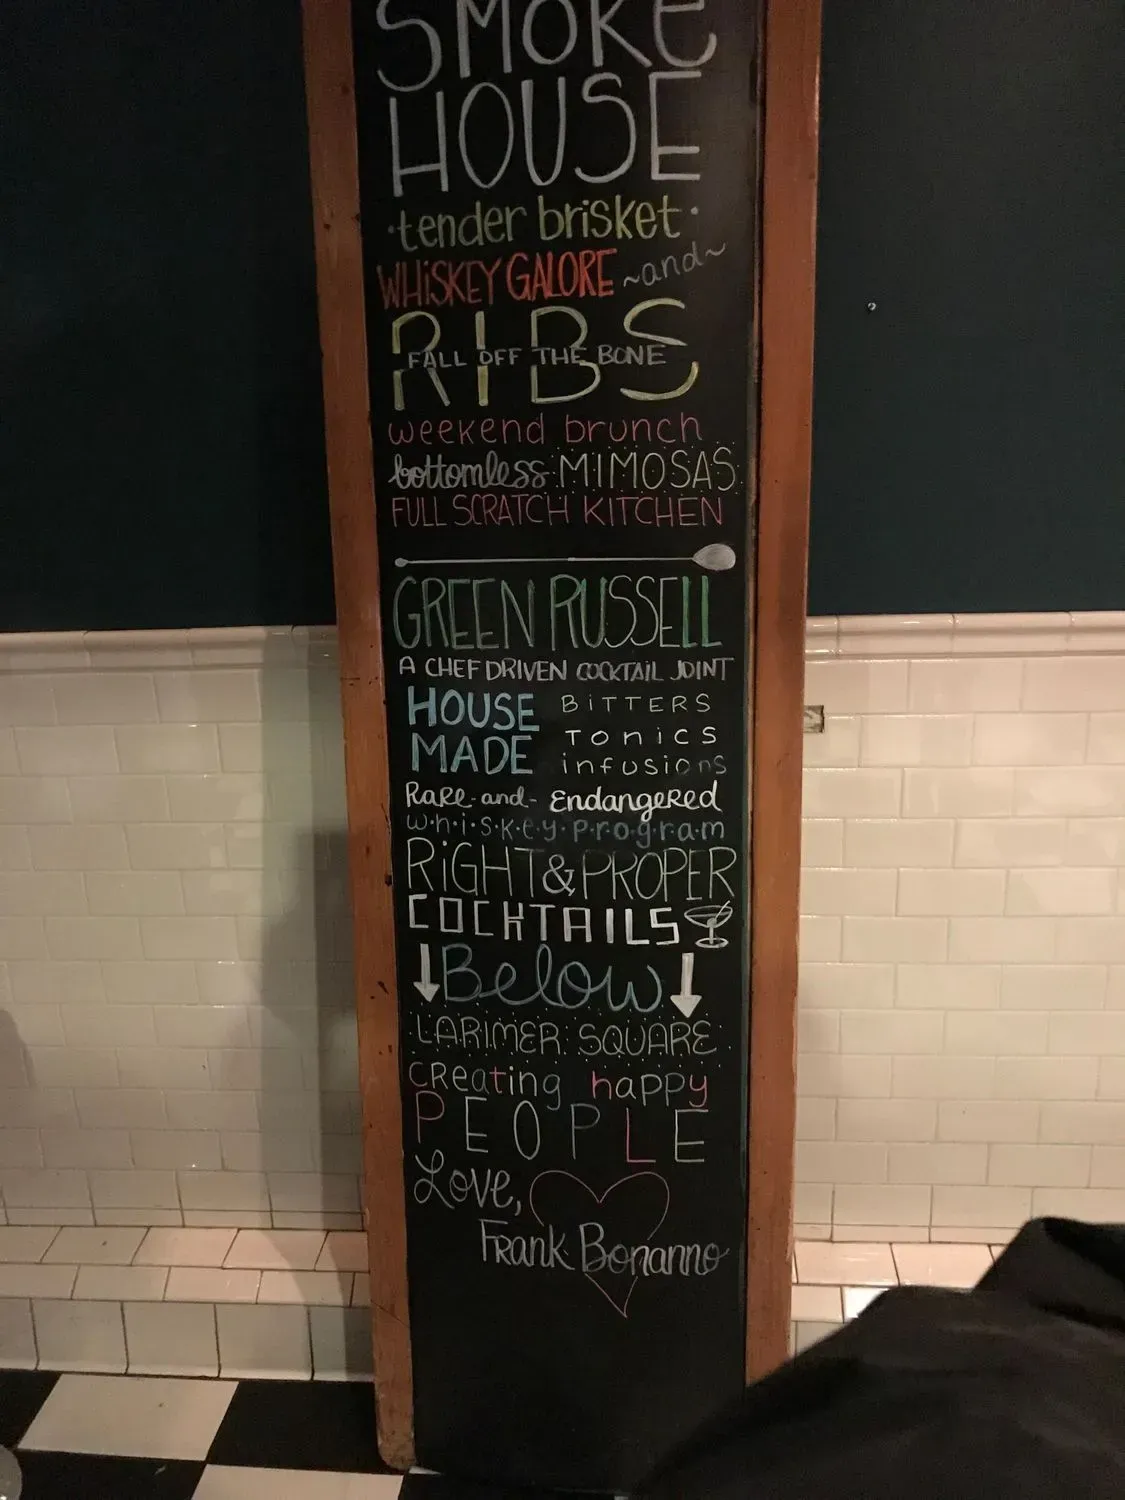 SMOKE
HOUSE
·tender brisket·
WHiSKEY GALORE ~and~
RIBS
FALL OFF THE BONE
weekend brunch
bottomless MIMOSAS
FULL SCRATCH KITCHEN
GREEN RUSSELL
A CHEF DRIVEN COCKTAIL JOINT
HOUSE MADE
BiTTERS
TONiCS
infusions
RaRe-and-EndangeRed
w·h·i·s·k·e·y·p·r·o·g·r·a·m
RiGHT & PROPER
COCKTAILS
Below
LARIMER SQUARE
creating happy
PEOPLE
Love,
Frank Bonanno